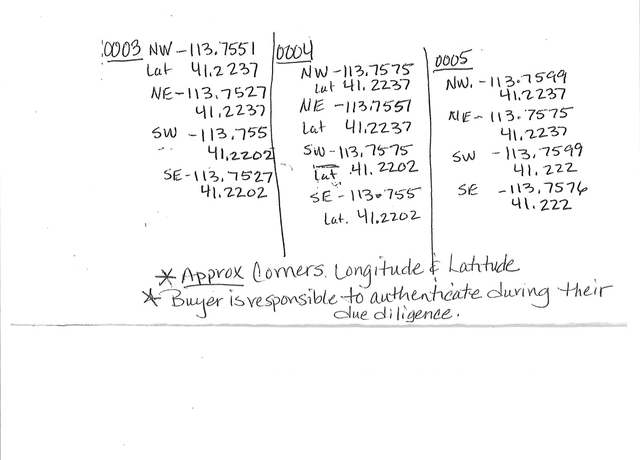 0003 NW -113.7551
Lat 41.2237
NE -113.7527
41.2237
SW -113.755
41.2202
SE -113.7527
41.2202
0004
NW -113.7575
Lat 41.2237
NE -113.7551
Lat 41.2237
SW -113.7575
Lat 41.2202
SE -113.755
Lat. 41.2202
0005
NW. -113.7599
41.2237
NE -113.7575
41.2237
SW -113.7599
41.222
SE -113.7576
41.222
* Approx Corners. Longitude & Latitude
* Buyer is responsible to authenticate during their
due diligence.